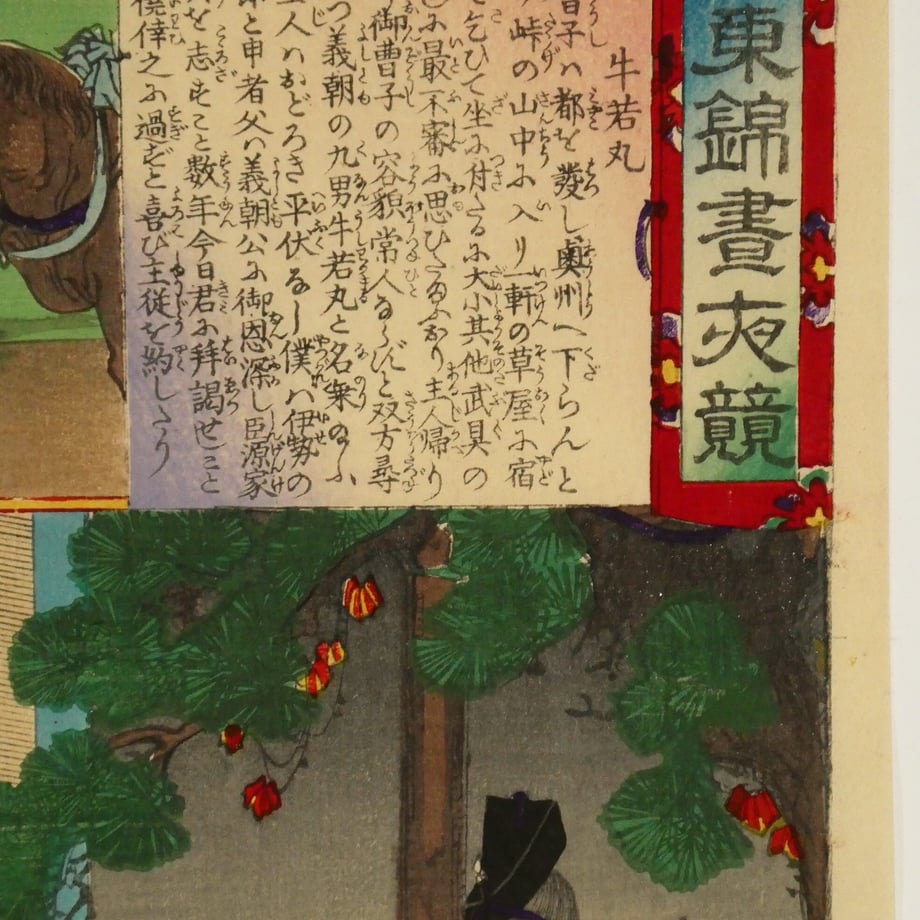 東錦晝夜競
牛若丸
曹子ハ都を發し奧州へ下らんと
峠の山中に入り一軒の草屋に宿
を乞ひて坐に付たるに大小其他武具の
最不審に思ひたる 主人帰り
御曹子の容貌常人ならずと双方尋
つ義朝の九男牛若丸と名乗のふ
主人ハおどろき平伏なし僕ハ伊勢の
と申者父ハ義朝公に御恩深し臣源家
を志すこと数年今日君に拝謁せこと
僥倖之に過ずと喜び主従を約したり